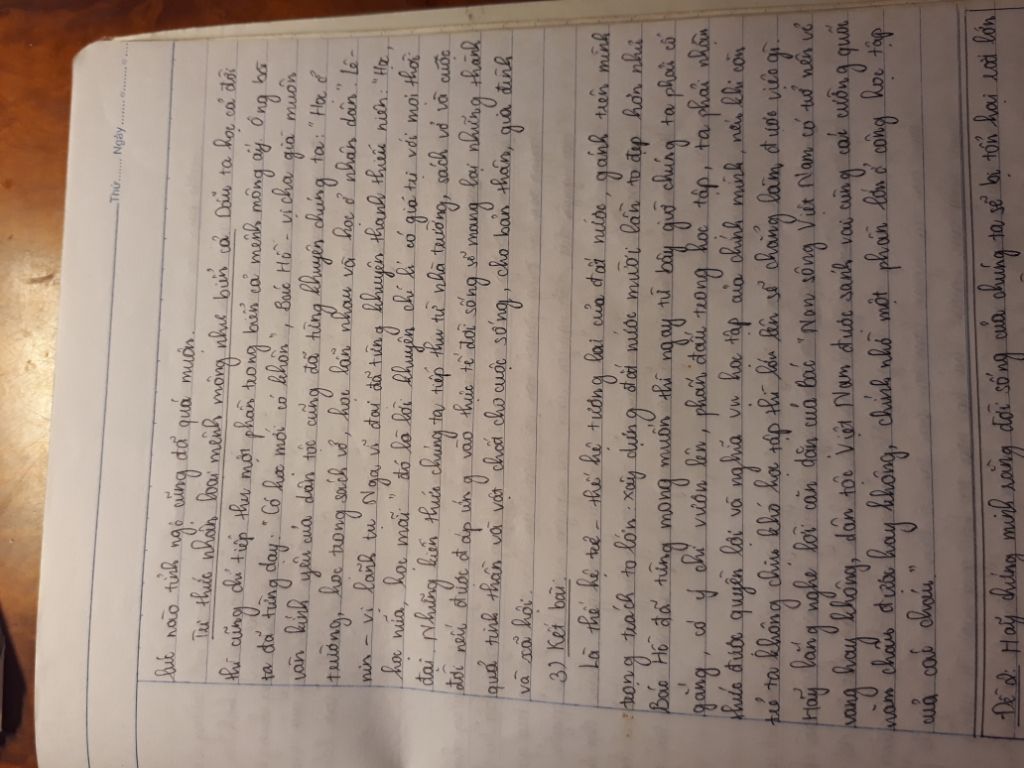 Thứ ....... Ngày ..............
lúc nào tỉnh ngộ cũng đã quá muộn.
Tri thức nhân loại mênh mông như biển cả. Dẫu ta học cả đời
thì cũng chỉ tiếp thu một phần trong biển cả mênh mông ấy. Ông bà
ta đã từng dạy: "Có học mới có khôn", Bác Hồ - vị cha già muôn
vàn kính yêu của dân tộc cũng đã từng khuyên chúng ta: "Học ở
trường, học trong sách vở, học lẫn nhau và học ở nhân dân". Lê-
nin - vị lãnh tụ Nga vĩ đại đã từng khuyên thanh thiếu niên: "Học,
học nữa, học mãi" đó là lời khuyên chí lí có giá trị với mọi thời
đại. Những kiến thức chúng ta tiếp thu từ nhà trường, sách vở và cuộc
đời nếu được đáp ứng vào thực tế đời sống sẽ mang lại những thành
quả tinh thần và vật chất cho cuộc sống, cho bản thân, gia đình
và xã hội.
3) Kết bài:
Là thế hệ trẻ - thế hệ tương lai của đất nước, gánh trên mình
trọng trách to lớn: xây dựng đất nước mười lần to đẹp hơn như
Bác Hồ đã từng mong muốn thì ngay từ bây giờ chúng ta phải cố
gắng, có ý chí vươn lên, phấn đấu trong học tập, ta phải nhận
thức được quyền lợi và nghĩa vụ học tập của chính mình, nếu khi còn
trẻ ta không chịu khó học tập thì lớn lên sẽ chẳng làm được việc gì.
Hãy lắng nghe lời căn dặn của bác "Non sông Việt Nam có trở nên vẻ
vang hay không, dân tộc Việt Nam được sánh vai cùng các cường quốc
năm châu được hay không, chính nhờ một phần lớn ở công học tập
của các cháu"
Đề 2: Hãy chứng minh rằng đời sống của chúng ta sẽ bị tổn hại rất lớn